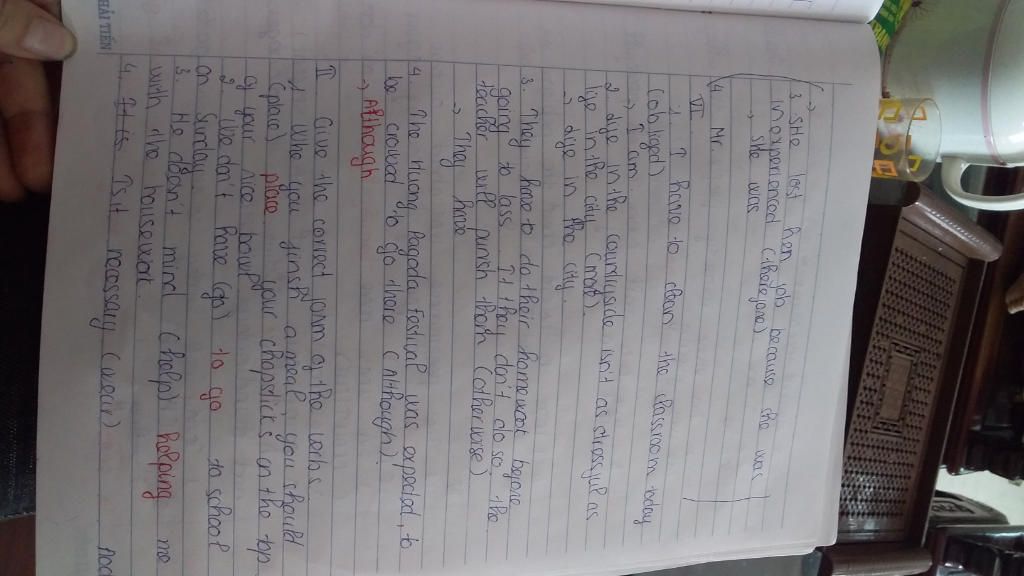 3. SHe lost her job because she was
in experienced (therefore)
→ SHe was
4. Mr.
VI.
1. I have to clean the classroom today
(obliged)
→ I am
2. life in the countryside isn't as stressful as
life in the city. (more)
→ life in the city.
3. They have to do their homework before
going to class. If they don't do so, the
teacher will punish them (otherwise)
→ They have
4. The Huong Pagoda Festival was expected to
be crowed to go there (Although).
→ Although
II Give the correct form of the verbs.
1. Whe you finish a meal, you should
(place) place your chopsticks on the top
of your rice bowl
2. We don't have (go) to go to school
on Sunday.
3. He doesn't mind (help) helping me
with the housework.
4. Is it necessary (wear)
HẢI TIẾN